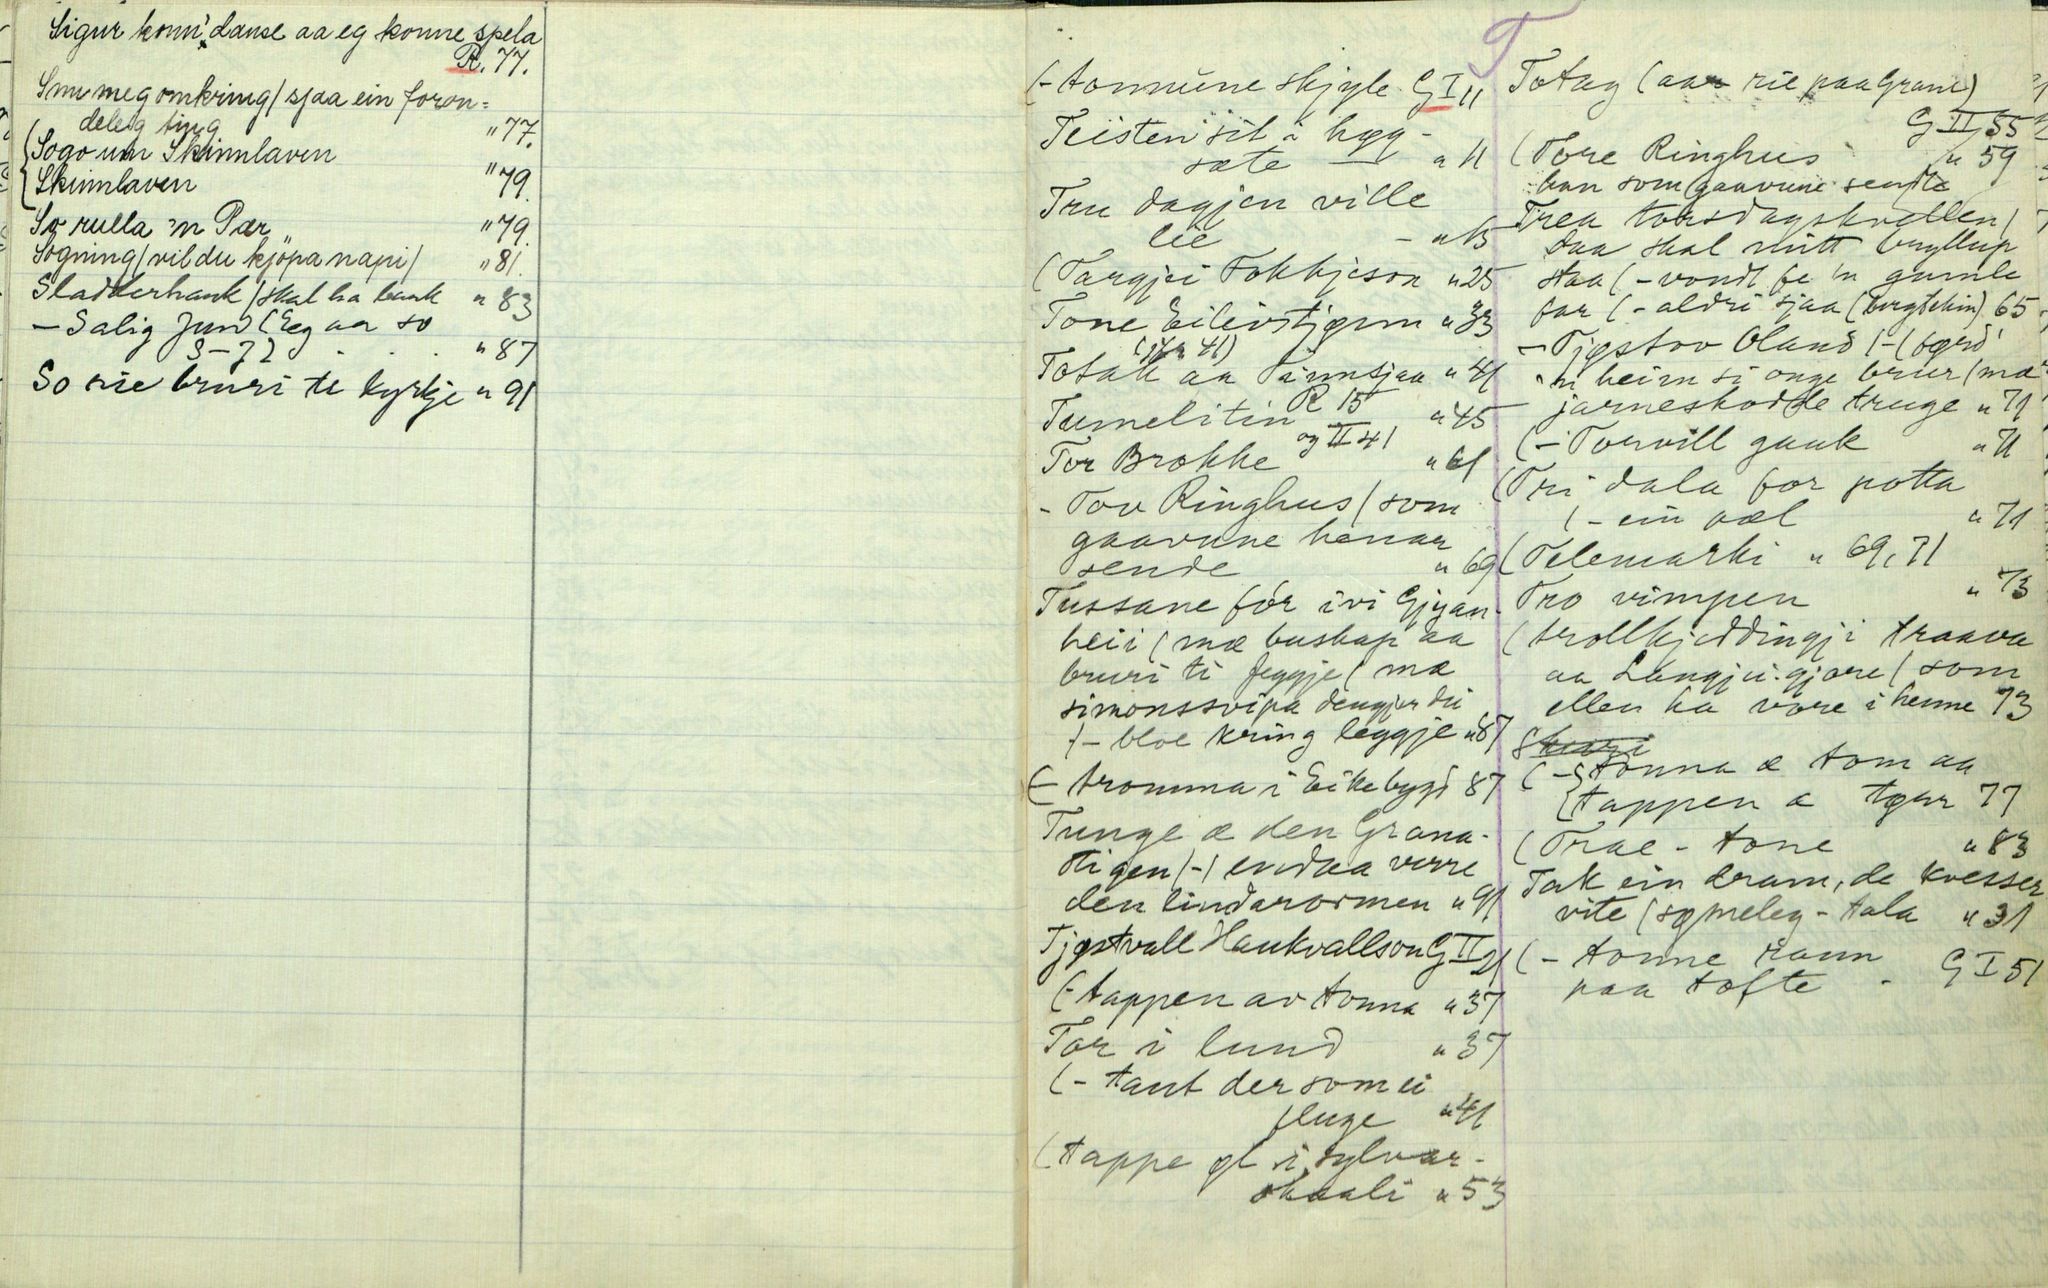 Sigur konn' danse aa eg konne spela
R. 77.
Snu meg omkring / sjaa ein foron-
deleg ting " 77.
(Sogo um Skinnlaven
Skinnlaven " 79
So rulla 'n Pær " 79.
Sogning / vil du kjöpa napi / " 81.
Sladderhank / skal ha bank " 83
- Salig Jund (Eg aa so " 87
So rie bruri te kyrkje " 91
T
(- tonnune skjyle G I 11
Teisten sit i høg-
sæte — " 11
Tru dagjen ville
lie - " 15
(Targjei Tokkjeson " 25
Tone Eilevstjønn " 33
Totak aa Tinnsjaa " 41
Tumelitin R 15 " 45
Tor Brokke og II 41 " 61
- Tov Ringhus / som
gaavune henar
sende " 69
Tussane fór ivi Gjyan-
heii ( mæ buskap aa
bruri ti feggje ( mæ
simonssvipa dengjer dei
/ - bloe kring leggje " 87
(- tromma i Eikebygd 87
Tunge æ den Grana-
stigen / - / endaa verre
den lindarormen " 91
Tjøstvall Haukvallson G II 21
(- tappen av tonna " 37
Tor i lund " 37
(- tant der som ei
fluge " 41
(tappe øl i sylvar-
skaali " 53
Totag (aar rie paa Grani)
G II 55
(Tore Ringhus " 59
han som gaavune sende
Trea torsdagskvellen /
daa skal mitt bryllup
staa (- vondt fe 'n gamle
far (- aldri sjaa (bergtekin) 65
- Tjøstov Øland / - ( førd'
'ni heim si onge brur / mæ
jarneskodde truge " 71
(- Torvill gauk " 71
(Tri dala for potta
(- ein væl " 71
(Telemarki " 69, 71
Tro vimpen " 73
(trollkjeddingji traava
aa Langjei-gjore / som
ellen ha vore i henne 73
(- tonna æ tom aa
tappen æ tør 77
(Trae - tone " 83
Tak ein dram, de kvesser
vite / sømeleg - tala " 31
(- tonne rann
paa tofte - G I 51